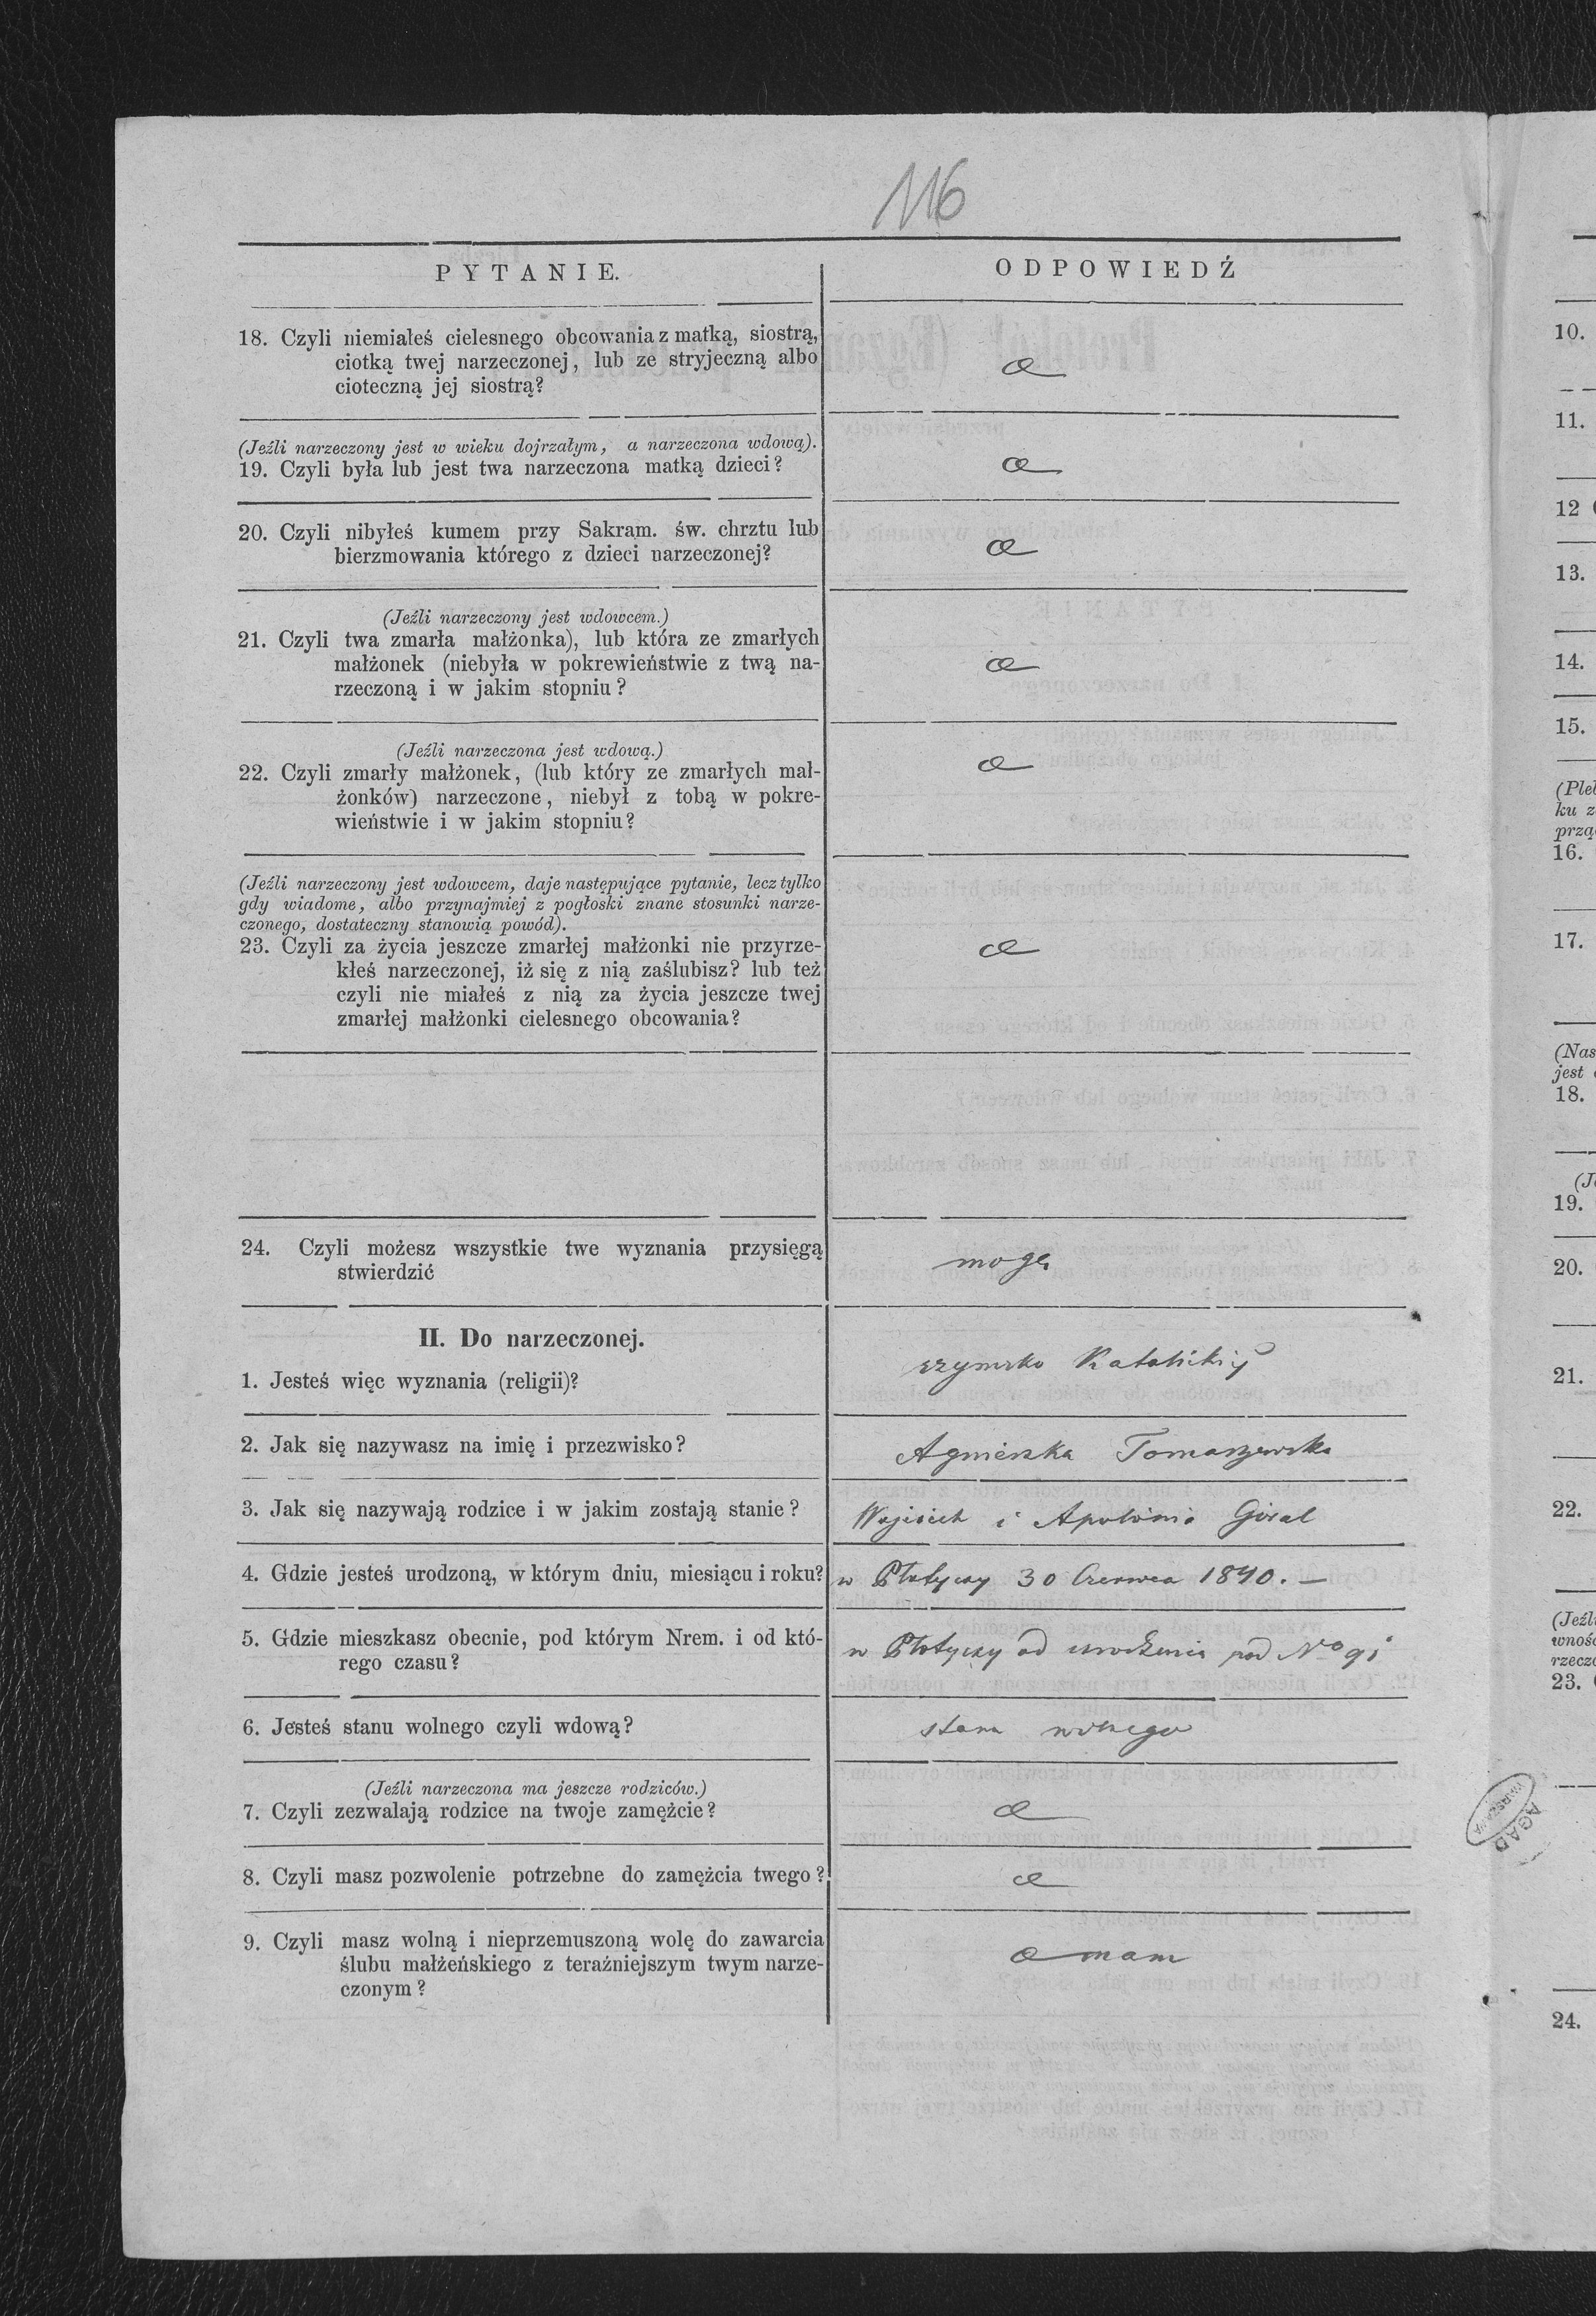 116
PYTANIE.
ODPOWIEDŹ
18. Czyli niemiałeś cielesnego obcowania z matką, siostrą,
ciotką twej narzeczonej, lub ze stryjeczną albo
cioteczną jej siostrą?
(Jeźli narzeczony jest w wieku dojrzałym, a narzeczona wdową).
19. Czyli była lub jest twa narzeczona matką dzieci?
20. Czyli nibyłeś kumem przy Sakram. św. chrztu lub
bierzmowania którego z dzieci narzeczonej?
(Jeźli narzeczony jest wdowcem.)
21. Czyli twa zmarła małżonka), lub która ze zmarłych
małżonek (niebyła w pokrewieństwie z twą na-
rzeczoną i w jakim stopniu?
(Jeźli narzeczona jest wdową.)
22. Czyli zmarły małżonek, (lub który ze zmarłych mał-
żonków) narzeczone, niebył z tobą w pokre-
wieństwie i w jakim stopniu?
(Jeźli narzeczony jest wdowcem, daje następujące pytanie, lecz tylko
gdy wiadome, albo przynajmiej z pogłoski znane stosunki narze-
czonego, dostateczny stanowią powód).
23. Czyli za życia jeszcze zmarłej małżonki nie przyrze-
kłeś narzeczonej, iż się z nią zaślubisz? lub też
czyli nie miałeś z nią za życia jeszcze twej
zmarłej małżonki cielesnego obcowania?
24. Czyli możesz wszystkie twe wyznania przysięgą
stwierdzić
mogę
II. Do narzeczonej.
1. Jesteś więc wyznania (religii)?
rzymsko Katolickiej
2. Jak się nazywasz na imię i przezwisko?
Agnieszka Tomaszewska
3. Jak się nazywają rodzice i w jakim zostają stanie?
Wojciech i Apolonia Góral
4. Gdzie jesteś urodzoną, w którym dniu, miesiącu i roku?
w Płotyczy 30 Czerwca 1840. —
5. Gdzie mieszkasz obecnie, pod którym Nrem. i od któ-
rego czasu?
w Płotyczy od urodzenia pod No 91
6. Jesteś stanu wolnego czyli wdową?
stanu wolnego
(Jeźli narzeczona ma jeszcze rodziców.)
7. Czyli zezwalają rodzice na twoje zamężcie?
8. Czyli masz pozwolenie potrzebne do zamężcia twego?
9. Czyli masz wolną i nieprzemuszoną wolę do zawarcia
ślubu małżeńskiego z teraźniejszym twym narze-
czonym?
mam
AGAD
WARSZAWA
10.
11.
12
13.
14.
15.
16.
17.
jest
18.
19.
20.
21.
22.
23.
24.